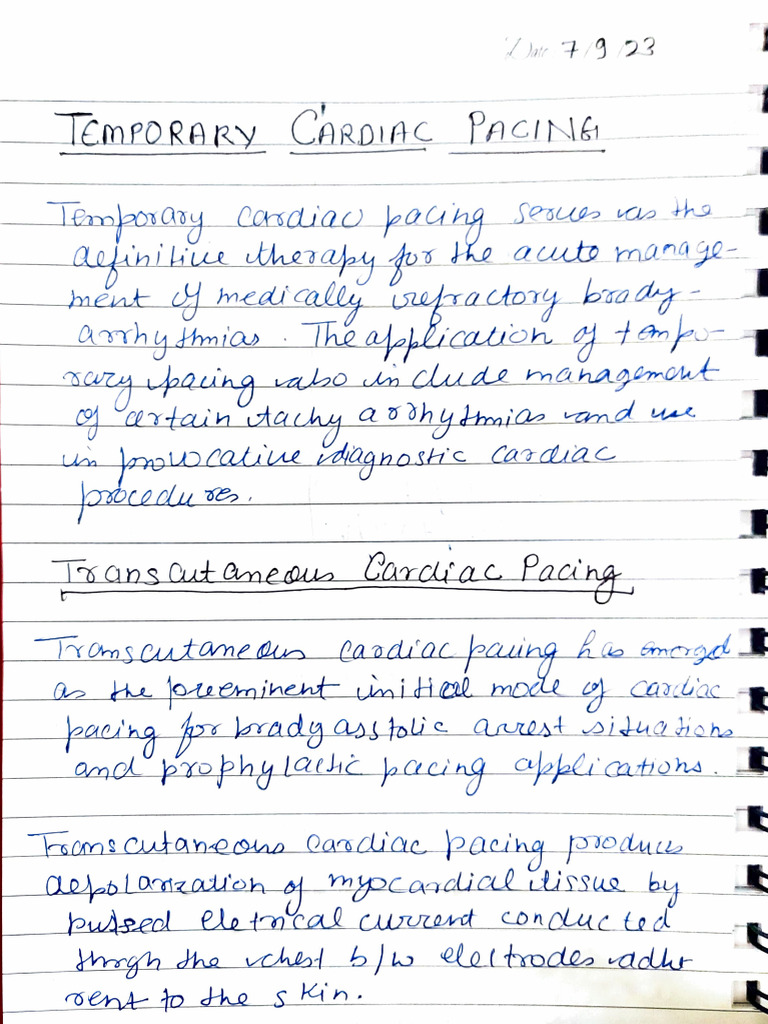 Date 7/9/23
TEMPORARY CARDIAC PACING
Temporary cardiac pacing serves as the
definitive therapy for the acute manage-
ment of medically refractory brady-
arrhythmias. The application of tempo-
rary pacing also include management
of certain tachy arrhythmias and use
in provocative diagnostic cardiac
procedures.
Transcutaneous Cardiac Pacing
Transcutaneous cardiac pacing has emerged
as the preeminent initial mode of cardiac
pacing for bradyasstolic arrest situations
and prophylactic pacing applications.
Transcutaneous cardiac pacing produces
depolarization of myocardial tissue by
pulsed eletrical current conducted
thrgh the chest b/w electrodes adhe
rent to the skin.